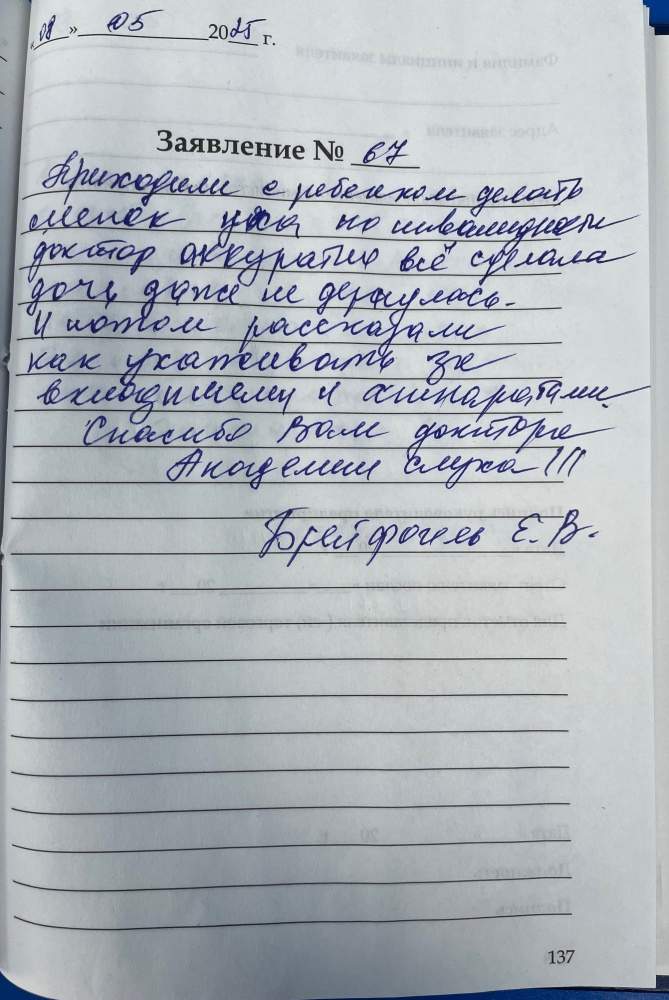 «08» 05 2025 г.
Заявление № 67
Приходили с ребенком делать
слепок уха по инвалидности
доктор аккуратно всё сделала
дочь даже не дернулась.
И потом рассказали
как ухаживать за
вкладышами и аппаратами.
Спасибо Вам доктора
Академии слуха!!!
Брейтфогель Е. В.
137